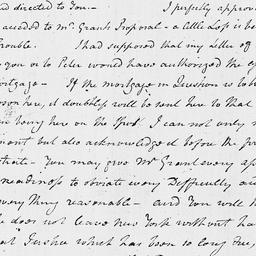 directed to You — I perfectly approv
acceded to Mr. Grants Proposal — a little Loss is be
rouble. I had supposed that my Letter of
you or to Peter would have authorized the
ortgage — If the mortgage in Question is to be
son here, it doubtless will be sent here to that
being here on the Spot I can not only
ment but also acknowledged before the pr
You may give Mr Grant every
readiness to obviate every Difficulty
very thing reasonable — and You will
he does not leave New York without
which has been so long